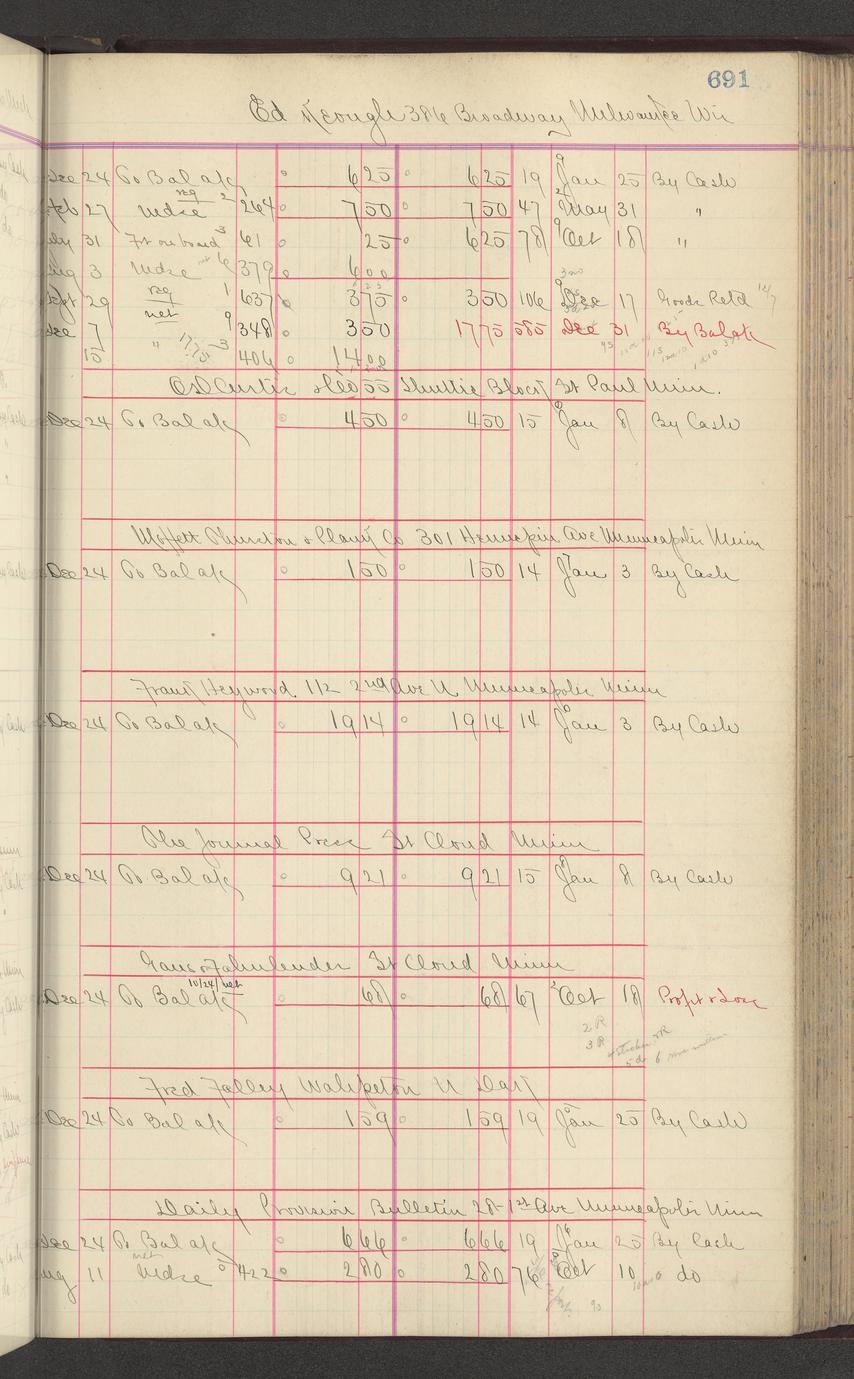 691
Ed Keough 386 Broadway Milwaukee Wis
Dec 24 To Bal a/c 6 25 6 25 19 Jan 25 By Cash
Feb 27 Mdse reg 2 264 7 50 7 50 47 May 31 "
July 31 Frt on board 3 61 25 6 25 78 Oct 18 "
Aug 3 Mdse net 6 379 6 00
Sept 29 reg 1 637 3 75 3 50 106 Dec 17 Goods Retd
Dec 7 net 9 348 3 50 17 75 585 Dec 31 By Bal a/c
15 " 17.75 3 406 14 00
Shuttle Block St Paul Minn.
Dec 24 To Bal a/c 4 50 4 50 15 Jan 8 By Cash
Moffett Thurston & Plank Co 301 Hennepin Ave Minneapolis Minn
Dec 24 To Bal a/c 1 50 1 50 14 Jan 3 By Cash
Frank Heywood 112 2nd Ave N Minneapolis Minn
Dec 24 To Bal a/c 19 14 19 14 14 Jan 3 By Cash
The Journal Press St Cloud Minn
Dec 24 To Bal a/c 9 21 9 21 15 Jan 8 By Cash
St Cloud Minn
10/24/ net
Dec 24 To Bal a/c 68 68 67 Oct 18 Profit & Loss
2 R
3 R
Fred Falley Wahpeton N Dak
Dec 24 To Bal a/c 1 59 1 59 19 Jan 25 By Cash
Daily Provision Bulletin 28-1st Ave Minneapolis Minn
Dec 24 To Bal a/c 6 66 6 66 19 Jan 25 By Cash
Aug 11 Mdse net 5 422 2 80 2 80 76 Oct 10 do